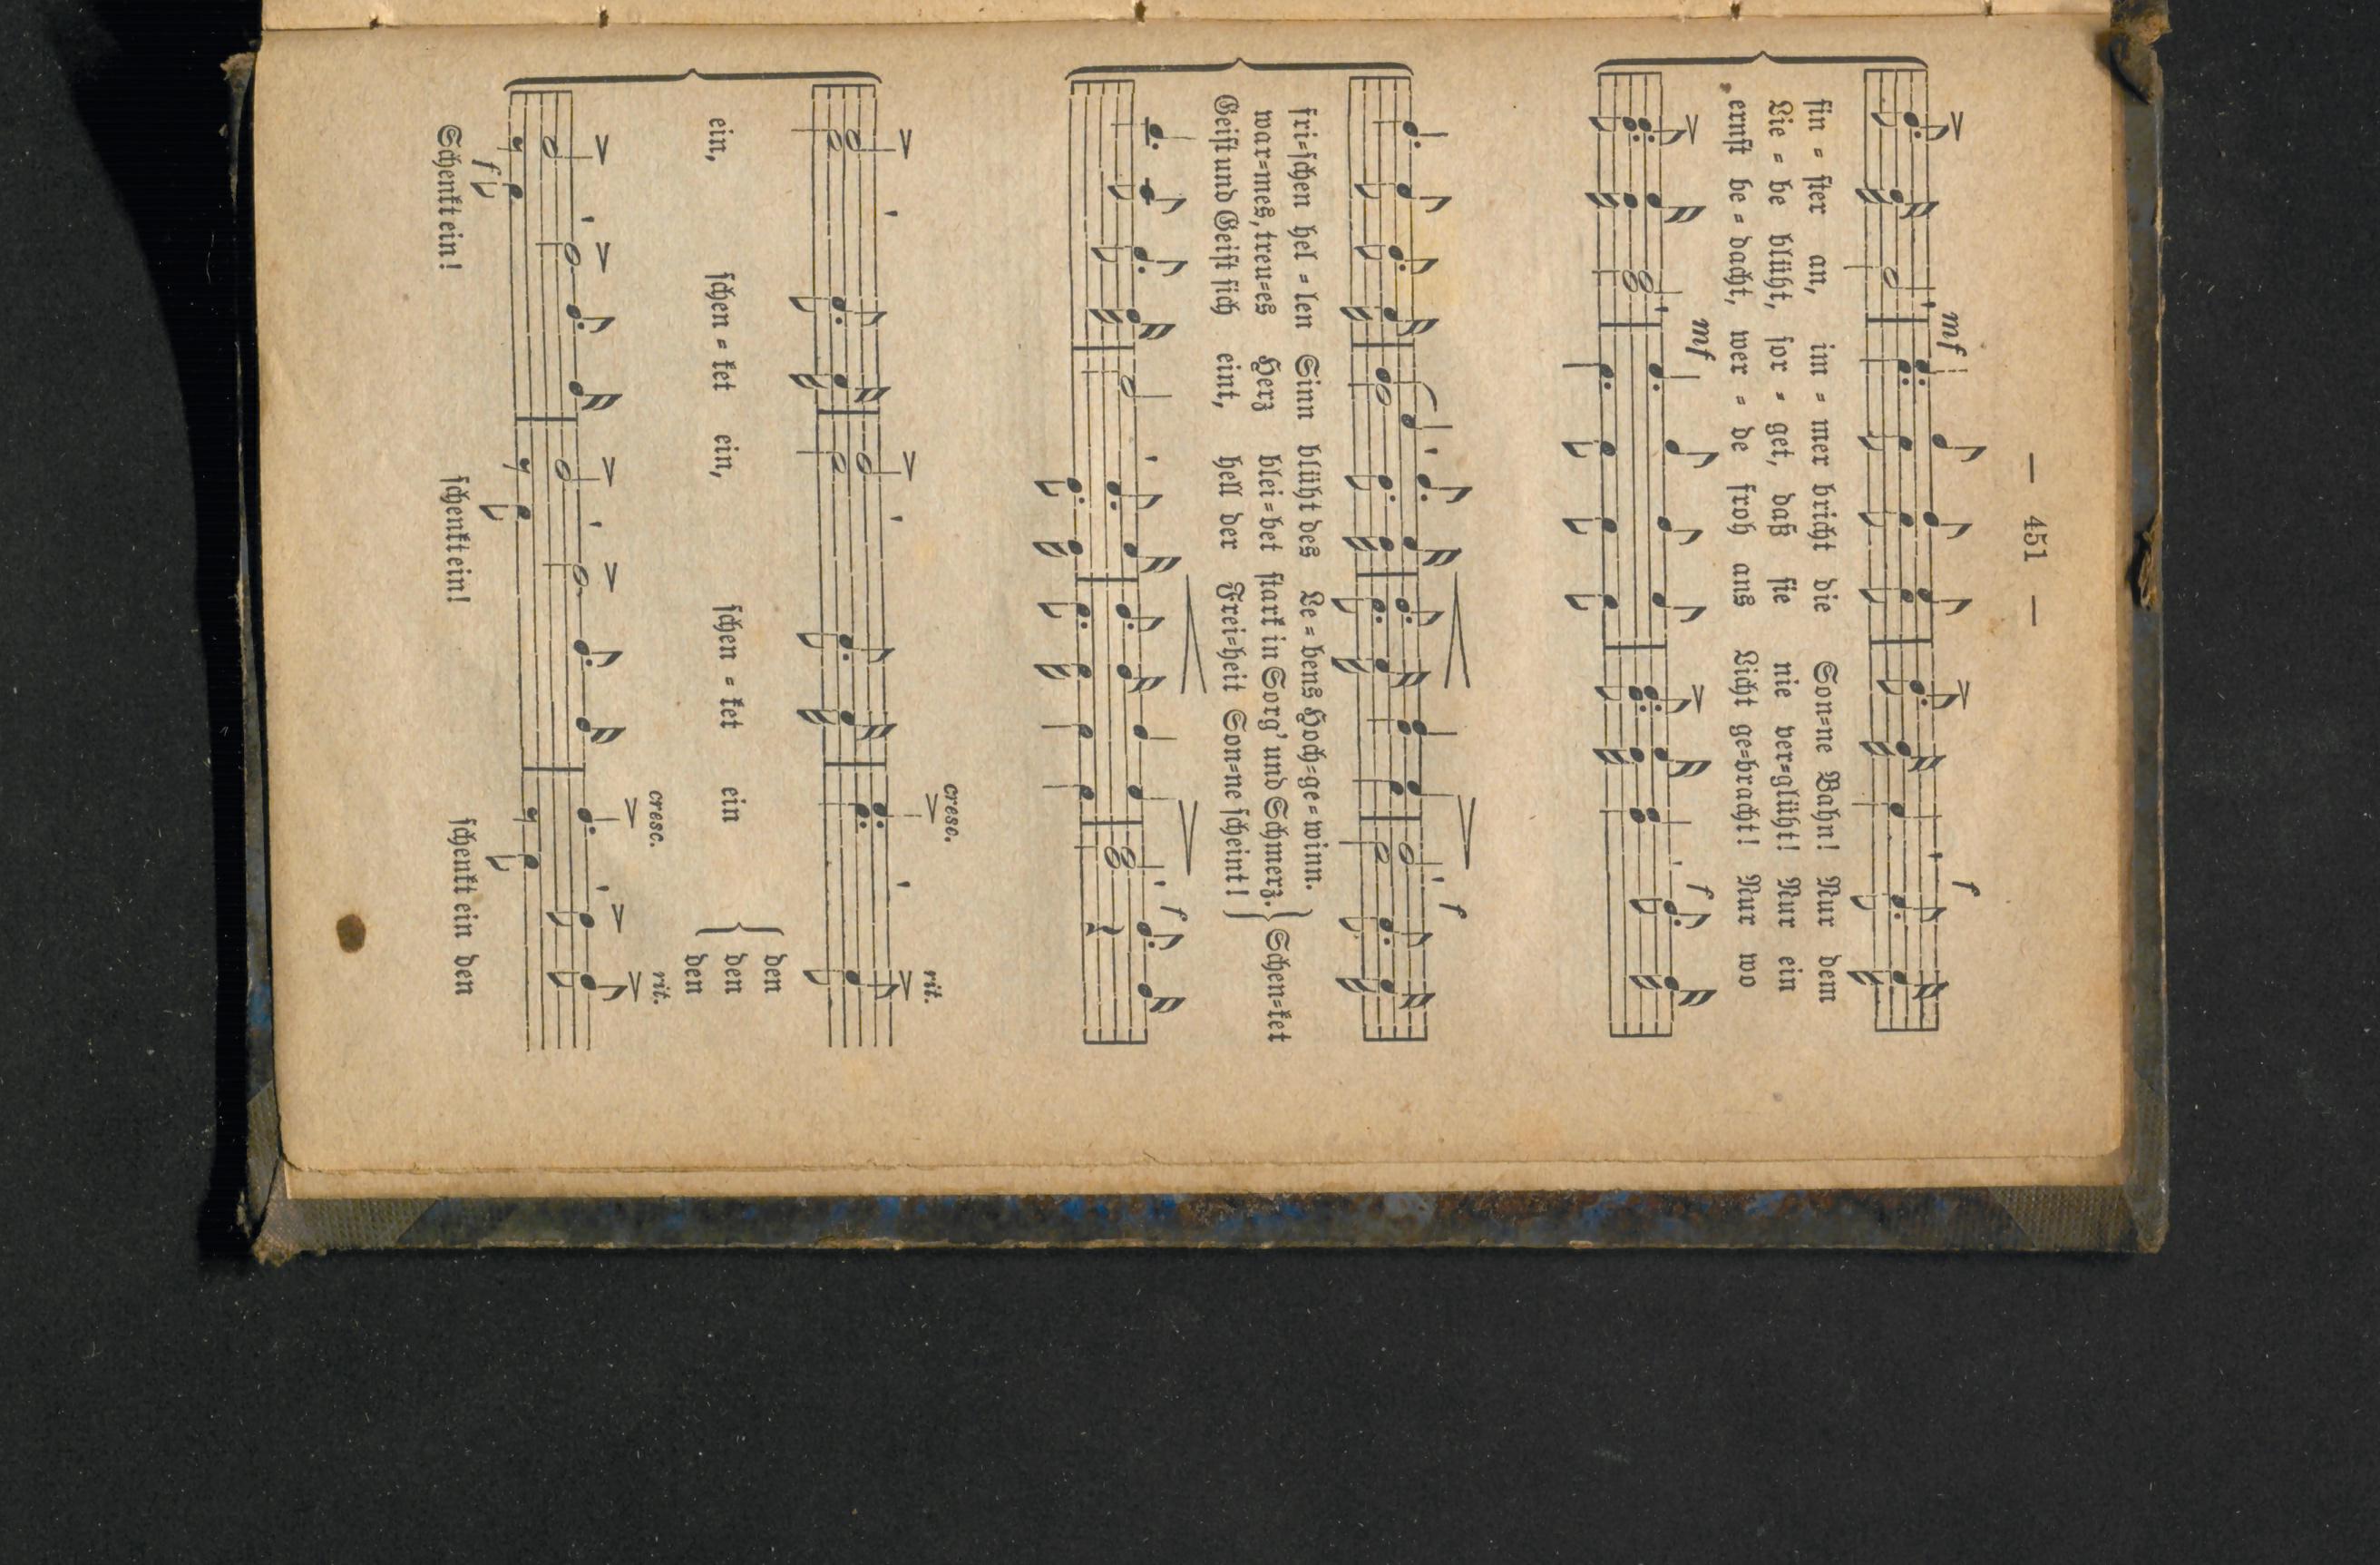 — 451 —
mf f
fin = ster an, im = mer bricht die Son=ne Bahn! Nur dem
Lie = be blüht, sor = get, daß sie nie ver=glüht! Nur ein
ernst be = dacht, wer = de froh ans Licht ge=bracht! Nur wo
mf f
f
fri=schen hel = len Sinn blüht des Le = bens Hoch=ge=winn.
war=mes, treu=es Herz blei=bet stark in Sorg' und Schmerz. Schen=ket
Geist und Geist sich eint, hell der Frei=heit Son=ne scheint!
f
cresc. rit.
den
ein, schen = ket ein, schen = ket ein den
den
cresc. rit.
f
Schenkt ein! schenkt ein! schenkt ein den